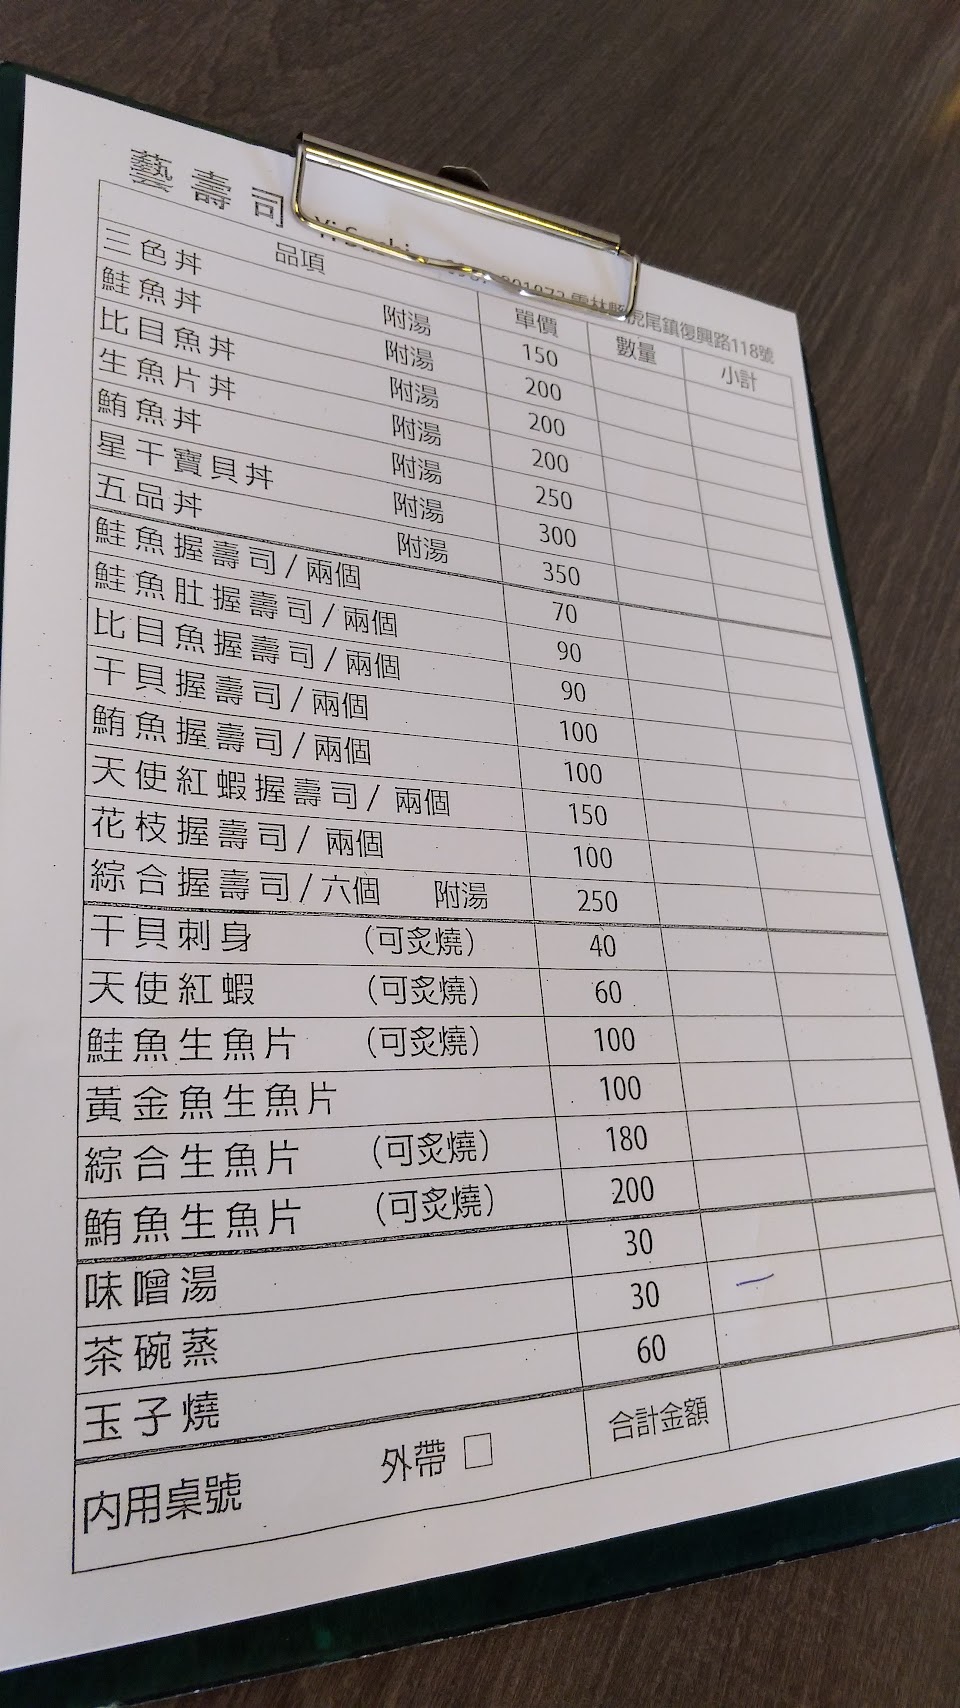 藝壽司
雲林縣虎尾鎮復興路118號
品項 單價 數量 小計
三色丼 附湯 150
鮭魚丼 附湯 200
比目魚丼 附湯 200
生魚片丼 附湯 200
鮪魚丼 附湯 250
星干寶貝丼 附湯 300
五品丼 附湯 350
鮭魚握壽司/兩個 70
鮭魚肚握壽司/兩個 90
比目魚握壽司/兩個 90
干貝握壽司/兩個 100
鮪魚握壽司/兩個 100
天使紅蝦握壽司/兩個 150
花枝握壽司/兩個 100
綜合握壽司/六個 附湯 250
干貝刺身 (可炙燒) 40
天使紅蝦 (可炙燒) 60
鮭魚生魚片 (可炙燒) 100
黃金魚生魚片 100
綜合生魚片 (可炙燒) 180
鮪魚生魚片 (可炙燒) 200
味噌湯 30
茶碗蒸 30 一
玉子燒 60
內用桌號 外帶 □ 合計金額